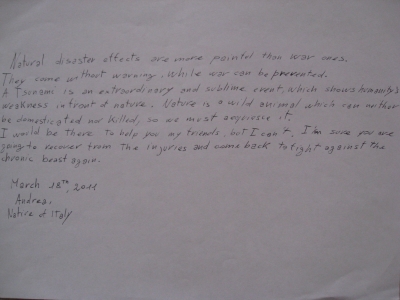 Natural disaster effects are more painful than war ones.
They come without warning, while war can be prevented.
A Tsunami is an extraordinary and sublime event, which shows humanity's
weakness in front of nature. Nature is a wild animal which can neither
be domesticated nor killed, so we must exorcise it.
I would be there to help you my friends, but I can't, I'm sure you are
going to recover from the injuries and come back to fight against the
chronic beast again.
March 18th, 2011
Andrea,
Native of Italy